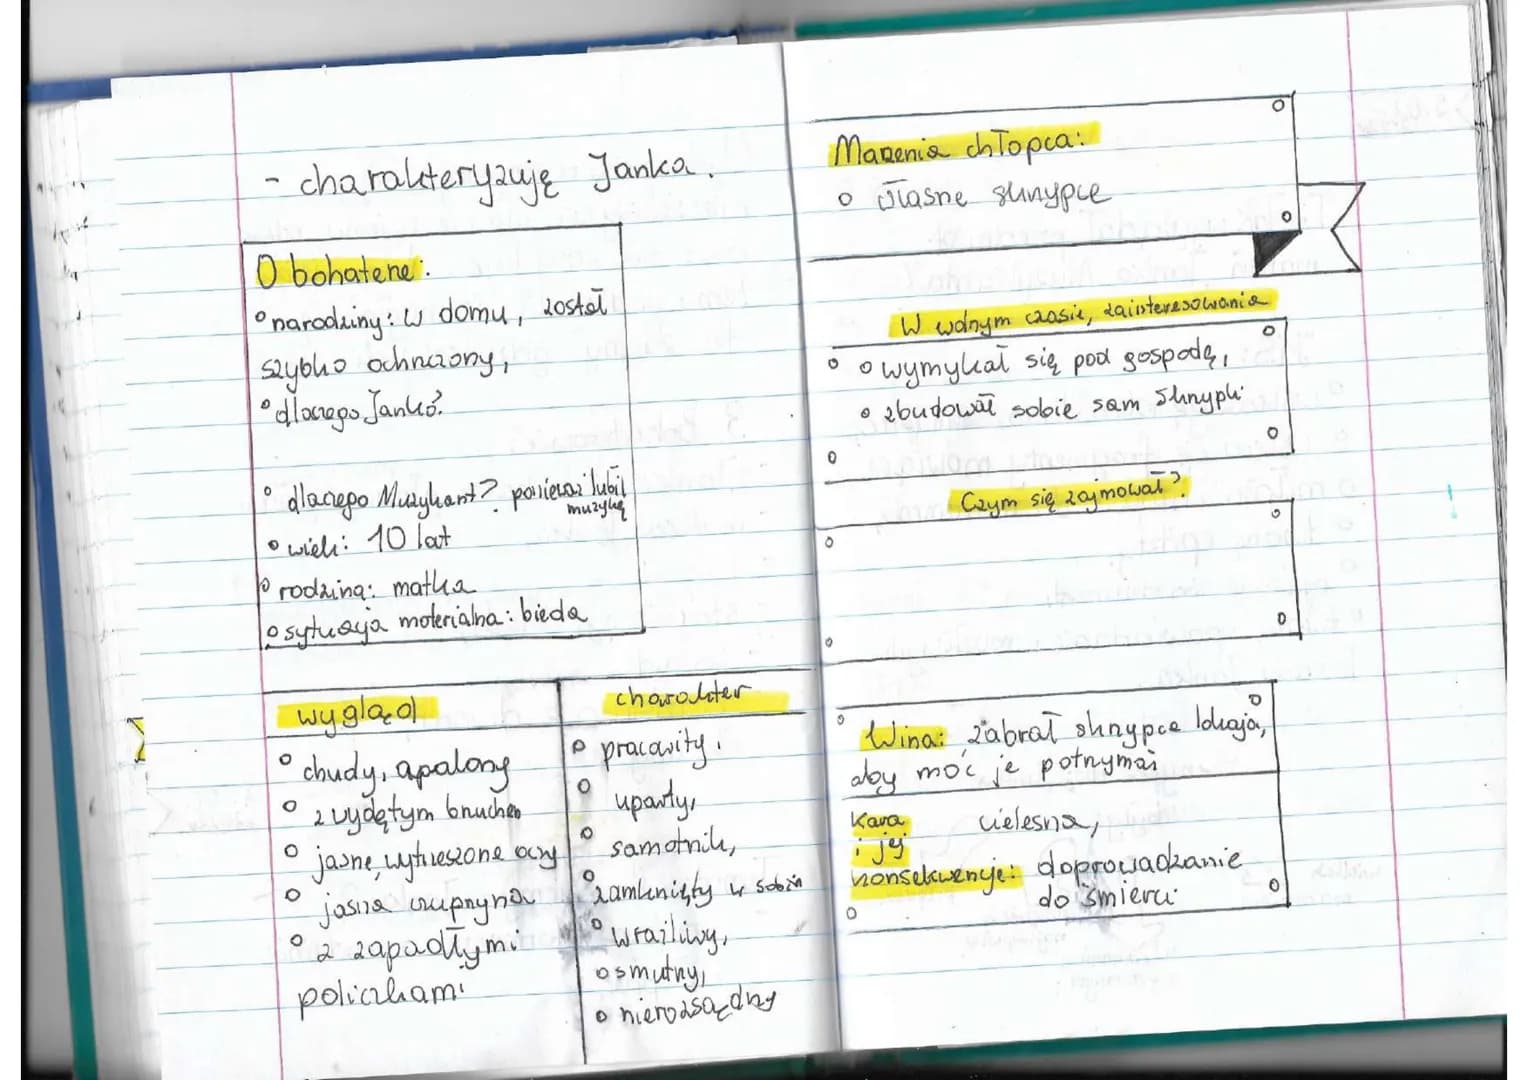 - charakteryzuję Janka.
O bohaterze:
° narodziny: w domu, został
szybko ochrzczony,
° dlaczego Janko?
° dlaczego Muzykant? ponieważ lubił
muzykę
° wiek: 10 lat
° rodzina: matka
° sytuacja materialna: bieda
wygląd
° chudy, opalony
° z wydętym brzuchem
° jasne, wytrzeszone oczy
° jasna czupryna
° z zapadłymi
policzkami
charakter
° pracowity,
° uparty,
° samotnik,
° zamknięty w sobie
° wrażliwy,
° smutny,
° nierozsądny
Marzenia chłopca:
° własne skrzypce
W wolnym czasie, zainteresowania
° wymykał się pod gospodę,
° zbudował sobie sam skrzypki
Czym się zajmował?
Wina: zabrał skrzypce lokaja,
aby móc je potrzymać
Kara cielesna,
i jej
konsekwencje: doprowadzanie
do śmierci